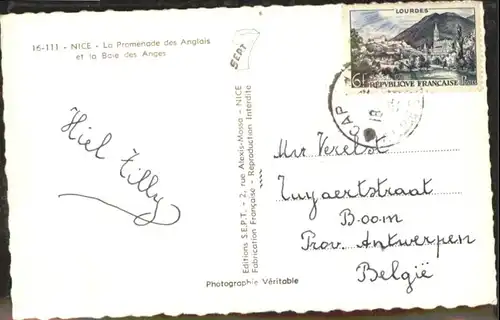 16-111 - NICE - La Promenade des Anglais
et la Baie des Anges
Hiel Tilly
Editions S.E.P.T. - 2, rue Alexis-Mossa - NICE
Fabrication Française - Reproduction Interdite
SEPT
Photographie Véritable
LOURDES
6F RÉPUBLIQUE FRANÇAISE Postes
CAP
18
Mr Verelst
Tuyaertstraat
Boom
Prov. Antwerpen
België